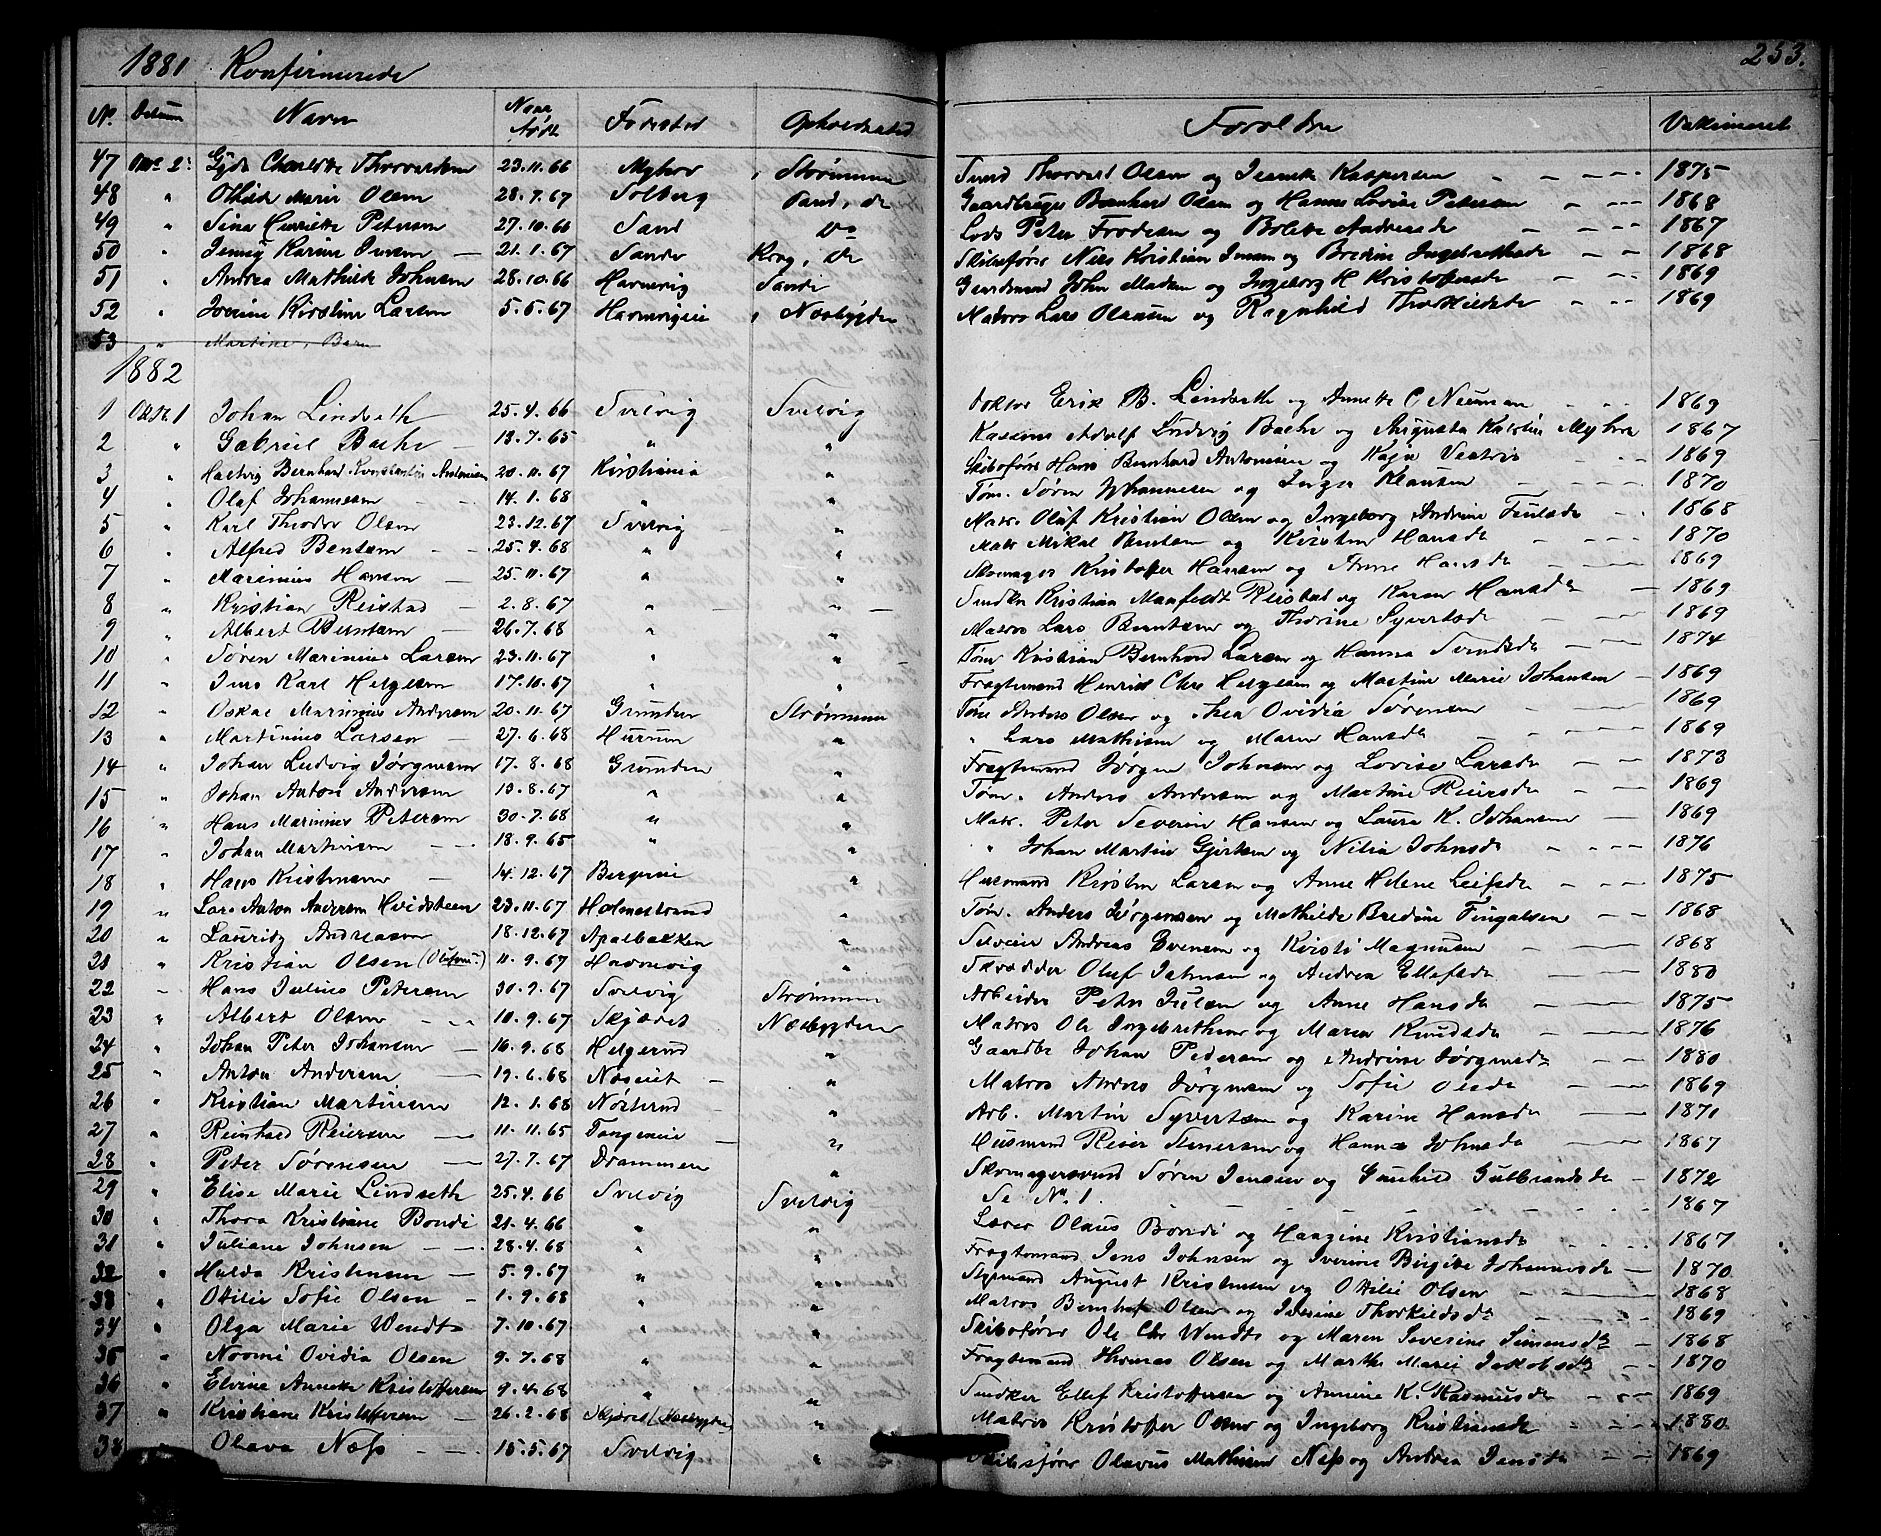 1881 Konfirmerede 253.
N. Datum Navn Naar født Fødested Opholdssted Forældre Vaksineret
47 Okt 2 Gyda Charlotte Thorvardsen 23.11.66 Myhre Strømmen Smed Thorvard Olsen og Jensik Kaspersen 1875
48 " Othilde Marie Olsen 28.7.67 Solberg Sand, do Gaardbruger Bernhard Olsen og Hanna Lovise Petersen 1868
49 " Sina Henriette Petersen 27.10.66 Sand do Lods Peter Frodesen og Bolette Andreasdr 1867
50 " Jenny Karine Jensen 21.1.67 Sande Krog, do Skibsfører Niels Kristian Jensen og Bredine Ingebretsdr 1868
51 " Andrea Mathilde Johnsen 28.10.66 Havnevig Sande Gaardmand John Madsen og Ingeborg H Kristoffersdr 1869
52 " Josine Kirstine Larsen 5.6.67 Havnvigeie Nesbygden Matros Lars Olausen og Ragnhild Thorkildsdr 1869
53 " Martine, Bern
1882
1 Okt 1 Johan Lindseth 25.4.66 Svelvig Svelvig Doktor Erik B. Lindseth og Annette C Neuman 1869
2 " Gabriel Bache 18.7.65 " " Adolf Ludvig Bache og Augusta Katrine Myhre 1867
3 " Hartvig Bernhard Konstantin Antonisen 20.11.67 Kristiania " Skibsfører Hans Bernhard Antonisen og Kaja 1869
4 " Olaf Johannesen 14.1.68 " " Tøm. Søren Johannesen og Inger Klausen 1870
5 " Karl Theodor Olsen 23.12.67 Svelvig " Matr. Oluf Kristian Olsen og Ingeborg Andrine 1868
6 " Alfred Bentsen 25.4.68 " " Matr Mikal Bentsen og Kirsten Hansdr 1870
7 " Marinius Hansen 25.11.67 " " Skomager Kristoffer Hansen og Anne Hansdr 1869
8 " Kristian Reistad 2.8.67 " " Snedker Kristian Manfeldt Reistad og Karen Hansdr 1869
9 " Albert Berntsen 26.7.68 " " Matros Lars Berntsen og Thorine Syvertsdr 1869
10 " Søren Marinius Larsen 23.11.67 " " Tøm Kristian Bernhard Larsen og Hanna Svendsdr 1874
11 " Jens Karl Helgesen 17.10.67 " " Fragtemand Henrik Chr Helgesen og Martine Marie Johansen 1869
12 " Oskar Marinius Andersen 20.11.67 Grunden Strømmen Tøm Anders Olsen og Thea Ovidia Sørensen 1869
13 " Martinius Larsen 27.6.68 Hurum " " Lars Mathisen og Maren Hansdr 1869
14 " Johan Ludvig Jørgensen 17.8.68 Grunden " Fragtemand Jørgen Johnsen og Lovise Larsdr 1873
15 " Johan Anton Andersen 13.8.67 " " Tøm. Anders Andersen og Martine Reiersdr 1869
16 " Hans Marinius Petersen 30.7.68 " " Matr. Peter Severin Hansen og Laura K. Johansen 1869
17 " Johan Martinsen 18.9.65 " " " Johan Martin Gjertsen og Nilia Johnsdr 1876
18 " Hans Kristensen 14.12.67 Bergeie " Husmand Kristen Larsen og Anne Helene Leifsdr 1875
19 " Lars Anton Andersen Hvidsteen 23.11.67 Holmestrand " Tøm. Anders Jørgensen og Mathilde Bredine Fingalsen 1868
20 " Lauritz Andreasen 18.12.67 Apalbakken " Selveier Andreas Evensen og Kirsti Magnusen 1868
21 " Kristian Olsen (Olufsen) 11.9.67 Havnevig " Skrædder Oluf Salmsen og Andrea Ellefsdr 1880
22 " Hans Julius Petersen 30.9.67 Svelvig Strømmen Arbeider Peter Julsen og Anne Hansdr 1875
23 " Albert Olsen 10.9.67 Skjæret Nesbygden Matros Ole Ingebrethsen og Maren Knudsdr 1876
24 " Johan Peter Johansen 16.9.68 Helgerud " Gaardbr Johan Pedersen og Andrine Jørgensdr 1880
25 " Anton Andersen 19.6.68 Neseiet " Matros Anders Jørgensen og Sofie Olsdr 1869
26 " Kristian Martinsen 12.1.68 Nøsterud " Arb. Martin Syvertsen og Karine Hansdr 1871
27 " Reinhard Reiersen 11.11.65 Tangeneie " Husmand Reier Stenersen og Hanna Johnsdr 1867
28 " Peter Sørensen 27.7.67 Drammen " Skomagersvend Søren Jensen og Gunhild Gulbrandsdr 1872
29 " Elise Marie Lindseth 25.4.66 Svelvig Svelvig Se No 1. 1867
30 " Thora Kristiane Bondi 21.4.66 " " Lærer Olaus Bondi og Haagine Kristiansdr 1867
31 " Juliane Johnsen 28.4.68 " " Fragtemand Jens Johnsen og Iverine Birgitte Johannesdr 1870
32 " Hulda Kristensen 5.9.67 " " Styrmand August Kristensen og Ottilie Olsen 1868
33 " Otilie Sofie Olsen 1.9.68 " " Matros Bernhof Olsen og Iverine Thorkildsdr 1869
34 " Olga Marie Wendt 7.10.67 " " Skibsfører Ole Chr Wendt og Maren Severine Simensdr 1868
35 " Noomi Ovidia Olsen 9.7.68 " " Fragtemand Thomas Olsen og Marthe Marie Jakobsdr 1870
36 " Elvine Annette Kristoffersen 9.4.68 " " Snedker Ellef Kristoffersen og Annine K. Rasmusdr 1869
37 " Kristiane Kristoffersen 26.2.68 Skjæret (Nesbygden) " Matros Kristoffer Olsen og Ingeborg Kristiansdr 1880
38 " Olava Næss 15.5.67 Svelvig " Skibsfører Olavus Mathisen Næss og Andrea Jensdr 1869